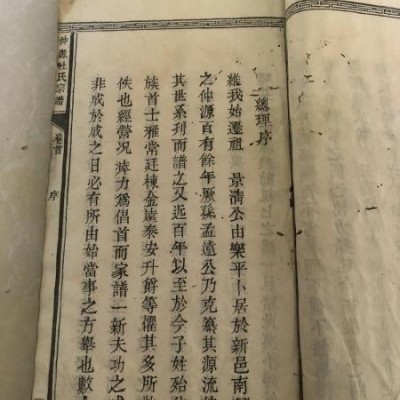 總理序
維我始遷祖 景清公由樂平卜居於新邑南
之仲源百有餘年厥孫孟遠公乃克纂其源流
其世系列而譜之又近百年以至於今子姓殆
族首士雅常廷棟金遠泰安升爵等懼其多所
佚也經營況瘁力爲倡首而家譜一新夫功之
非成於成之日必有所由始當事之方舉也數
杜氏宗譜
卷首
序